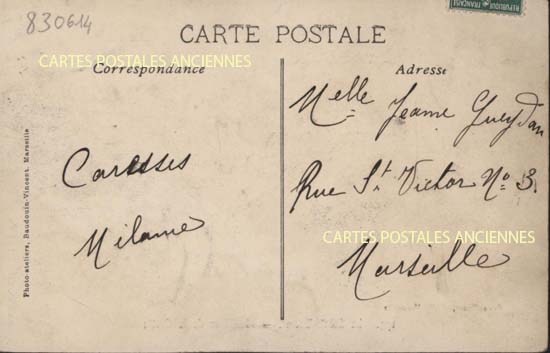 830614
CARTE POSTALE
CARTES POSTALES ANCIENNES
Correspondance
Adresse
Caresses
Photo-ateliers, Baudouin-Vincent, Marseille
Melle Jeanne Gueydan
Rue St Victor No 3.
CARTES POSTALES ANCIENNES
Marseille